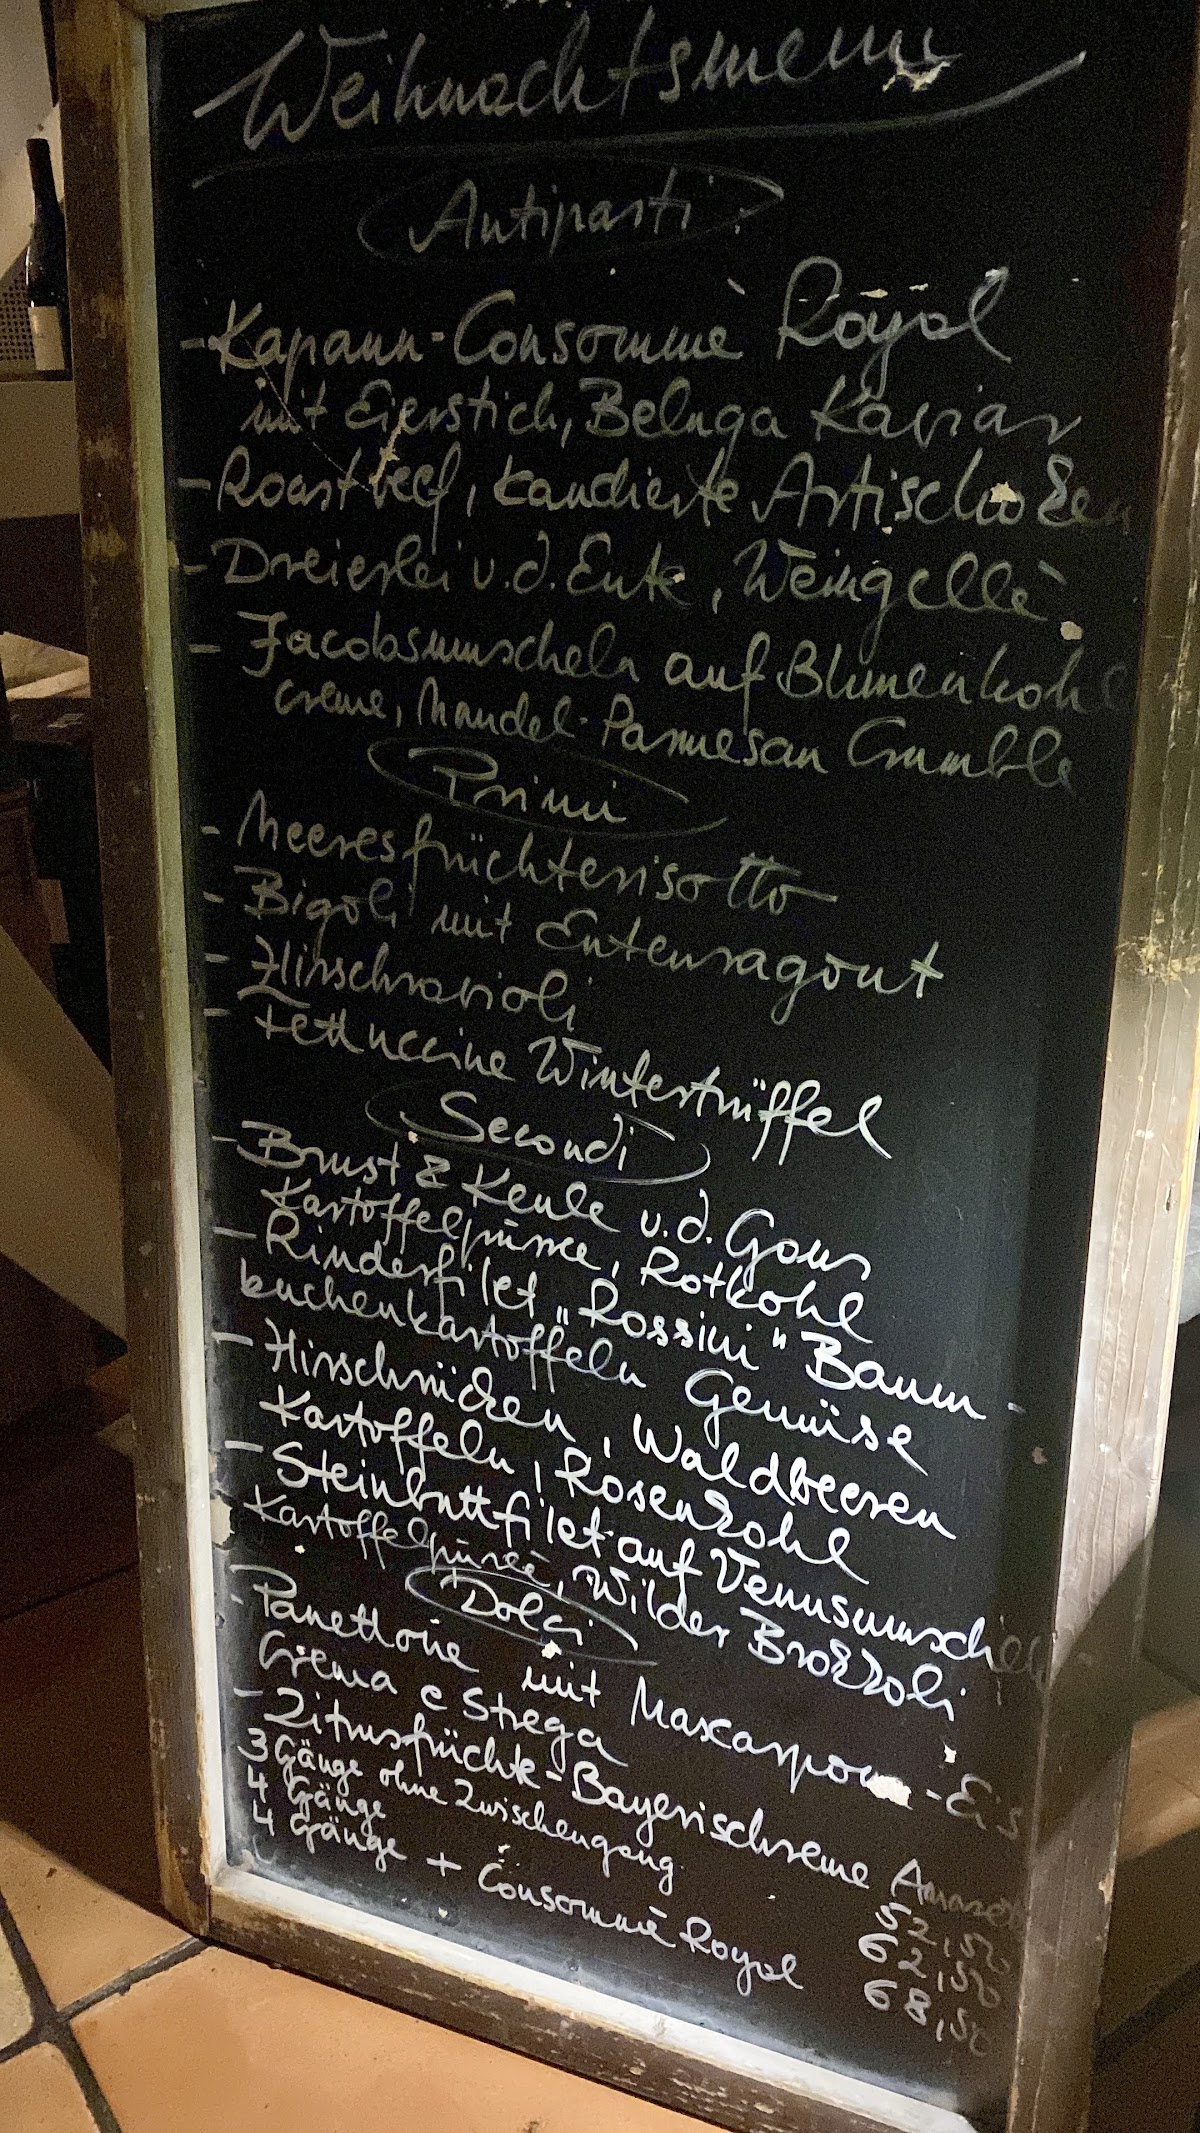 Weihnachtsmenü
Antipasti:
- Kapaun-Consommè Royal
mit Eierstich, Beluga Kaviar
- Roastbeef, kandierte Artischoken
- Dreierlei v.d. Ente, Weingellè
- Jacobsmuscheln auf Blumenkohl
creme, Mandel-Parmesan Crumble
Primi
- Meeresfrüchterisotto
- Bigoli mit Entenragout
- Hirschravioli
- Fettuccine Wintertrüffel
Secondi
- Brust & Keule v.d. Gans
Kartoffelpüree, Rotkohl
- Rinderfilet "Rossini" Baum-
kuchenkartoffeln Gemüse
- Hirschrücken, Waldbeeren
Kartoffeln, Rosenkohl
- Steinbuttfilet auf Venusmuscheln
Kartoffelpüreè, Wilder Brokkoli
Dolci
- Panettone mit Mascarpone-Eis
Crema e Strega
- Zitrusfrüchte-Bayerischcreme
3 Gänge ohne Zwischengang 52,50
4 Gänge 62,50
4 Gänge + Consommè Royal 68,50